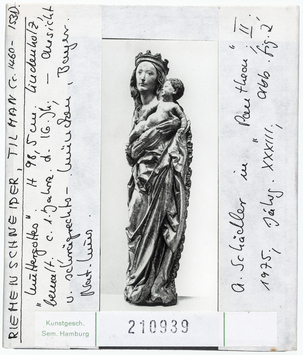 RIEMENSCHNEIDER, TILMAN (c. 1460-1531)
"Muttergottes" H 98,5 cm, Lindenholz,
bemalt, c. 1. Jahrz. d. 16. Jh. — Ansicht
v. schrägrechts — München, Bayer.
Nat. Mus.
A. Schädler in "Pantheon" II
1975, Jahrg. XXXIII, Abb. fig. 2
Kunstgesch.
Sem. Hamburg
210939